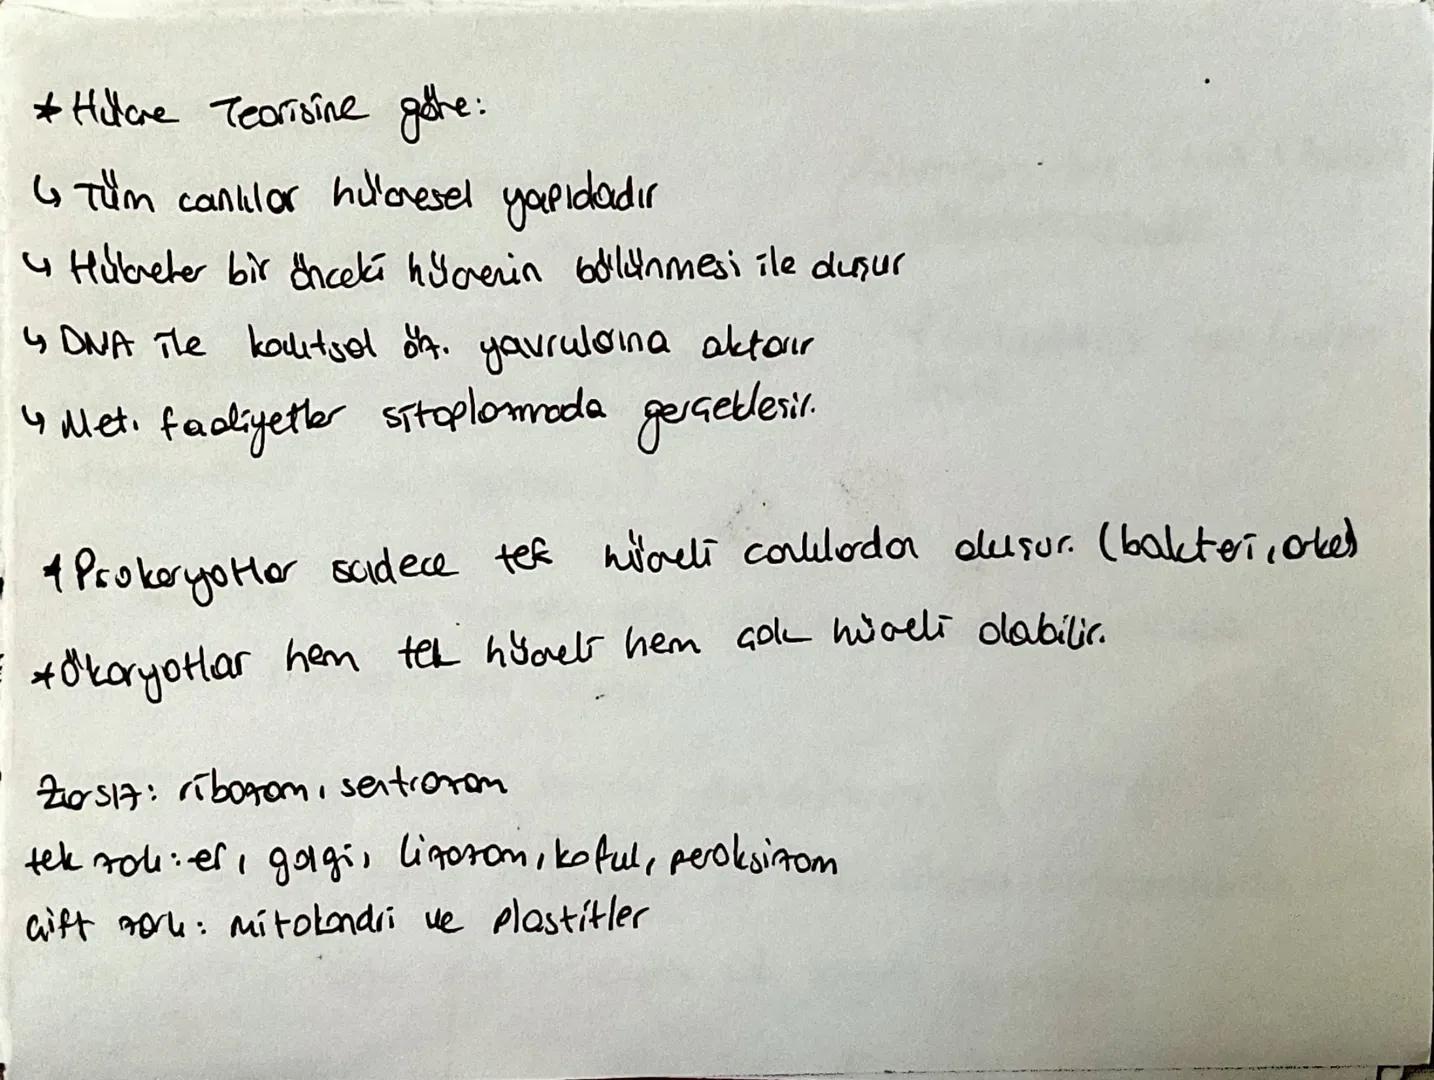 * Hücre Teorisine göre:
↳ Tüm canlılar hücresel yapıdadır
↳ Hücreler bir önceki hücrenin bölünmesi ile oluşur
↳ DNA ile kalıtsal öz. yavrularına aktarır
↳ Met. faaliyetler sitoplazmada gerçekleşir.
* Prokaryotlar sadece tek hücreli canlılardan oluşur. (bakteri, arke)
* Ökaryotlar hem tek hücreli hem çok hücreli olabilir.
Zarsız: ribozom, sentrozom
tek zarlı: er, golgi, lizozom, koful, peroksizom
Çift zarlı: mitokondri ve plastitler